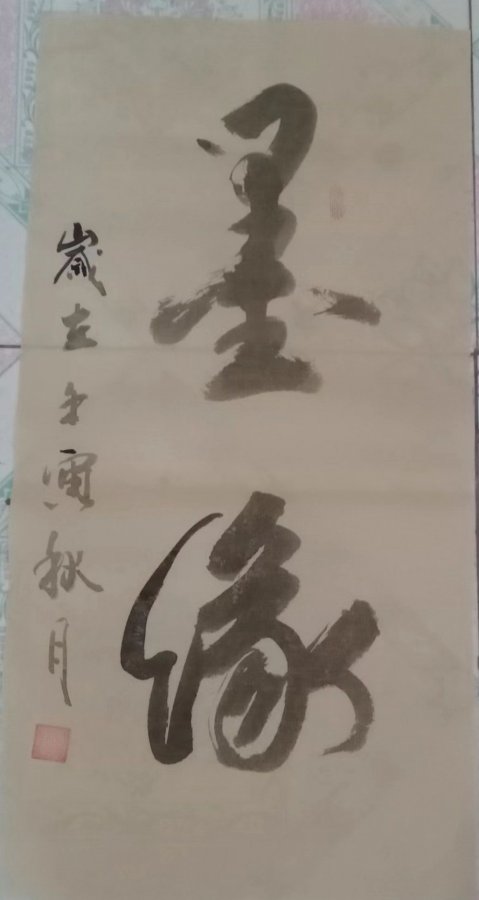 墨缘
岁在壬寅秋月